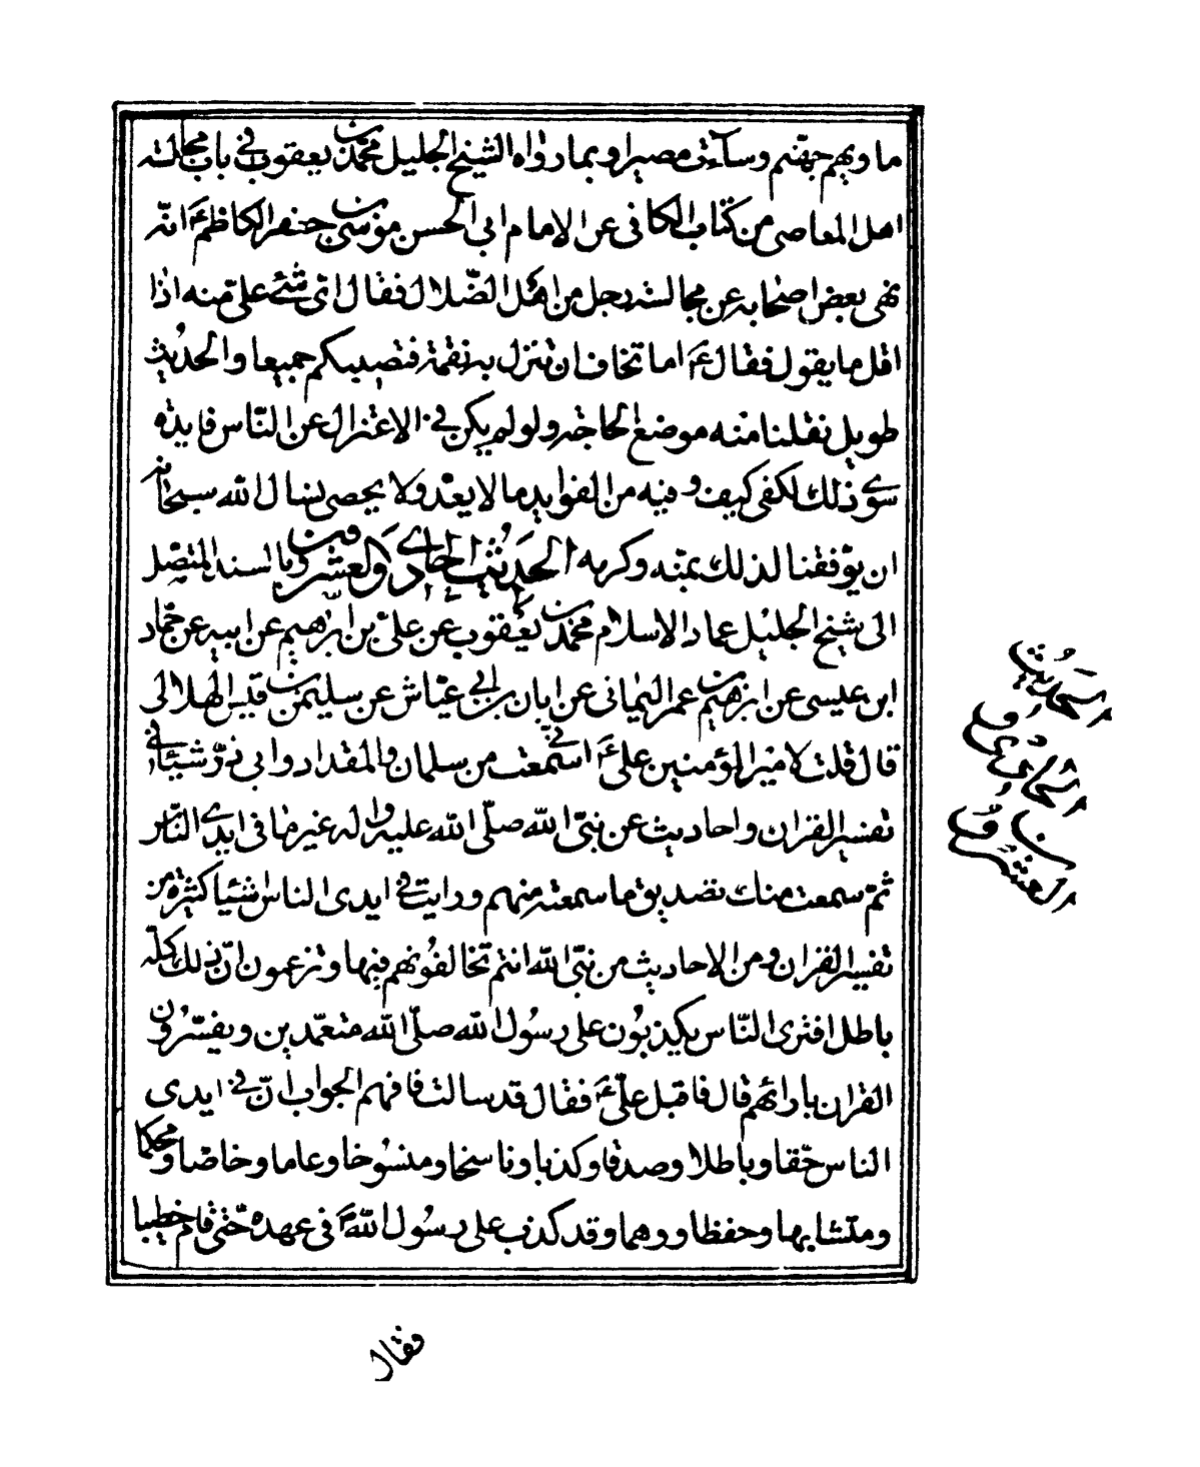 ماويهم جهنم وسآءت مصيرا وبما رواه الشيخ الجليل محمد بن يعقوب في باب مجالسة
اهل المعاصى من كتاب الكافى عن الامام ابي الحسن موسى بن جعفر الكاظم ع انّه
نهى بعض اصحابه عن مجالسة رجل من اهل الضّلال فقال اى شئ علىّ منه اذا
لم اقل ما يقول فقال ع اما تخاف ان تنزل به نقمة فتصيبكم جميعا والحديث
طويل نقلنا منه موضع الحاجة ولو لم يكن في الاعتزال عن النّاس فايدة
سوى ذلك لكفى كيف وفيه من الفوايد ما لا يعدّ ولا يحصى نسال اللّه سبحانه
ان يوّفقنا لذلك بمنّه وكرمه الحَديث الحادي وَالعشرون وبالسند المتّصل
الى شيخ الجليل عماد الاسلام محمّد بن يعقوب عن علىّ بن ابرهيم عن ابيه عن حمّاد
ابن عيسى عن ابرهيم بن عمر اليمانى عن ابان بن ابي عيّاش عن سليم بن قيس الهلالى
قال قلت لامير المؤمنين علىّ ع انّى سمعت من سلمان والمقداد وابى ذرّ شيئا فى
تفسير القران واحاديث عن نبىّ اللّه صلّى اللّه عليه واله غير ما فى ايدى النّاس
ثمّ سمعت منك تصديق ما سمعته منهم ورايت في ايدى الناس شيئا كثيرة من
تفسير القران ومن الاحاديث من نبىّ اللّه انتم تخالفونهم فيها وتزعمون انّ ذلك كلّه
باطل افترى النّاس يكذبُون على رسُول اللّه صلّى اللّه متعمّدين ويفسّرُون
القران بارائهم قال فاقبل علىّ ع فقال قد سالت فافهم الجواب انّ في ايدى
الناس حقّا وباطلا وصدقا وكذبا وناسخا ومنسُوخا وعاما وخاصّا ومحكما
ومتشابها وحفظا ووهما وقد كذب على رسُول اللّه ص فى عهده حتّى قام خطيبا
فقال
الحَديث
الحادى و
العشرون